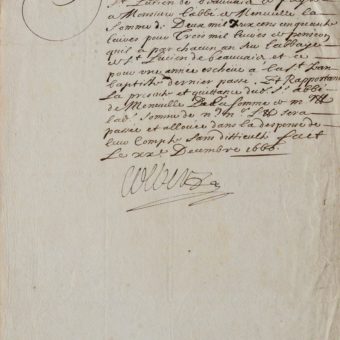 St Lucien de Beauvais de payer
a Monsieur l'abbé de Meneville la
somme de Deux mil deux cens cinquante
livres pour Trois mil livres de pension
quil a par chacun an sur labbaye
de St Lucien de Beauvais et ce
pour une année escheue a la St Jean
baptiste dernier passé. Et Rapportant
la presente et quittance du d. Sr abbé
de Meneville De la somme de
lad. somme de sera
passée et allouée dans la despense de
leur Compte sans difficulté faict
Le xxe Decembre 1666
Colbert